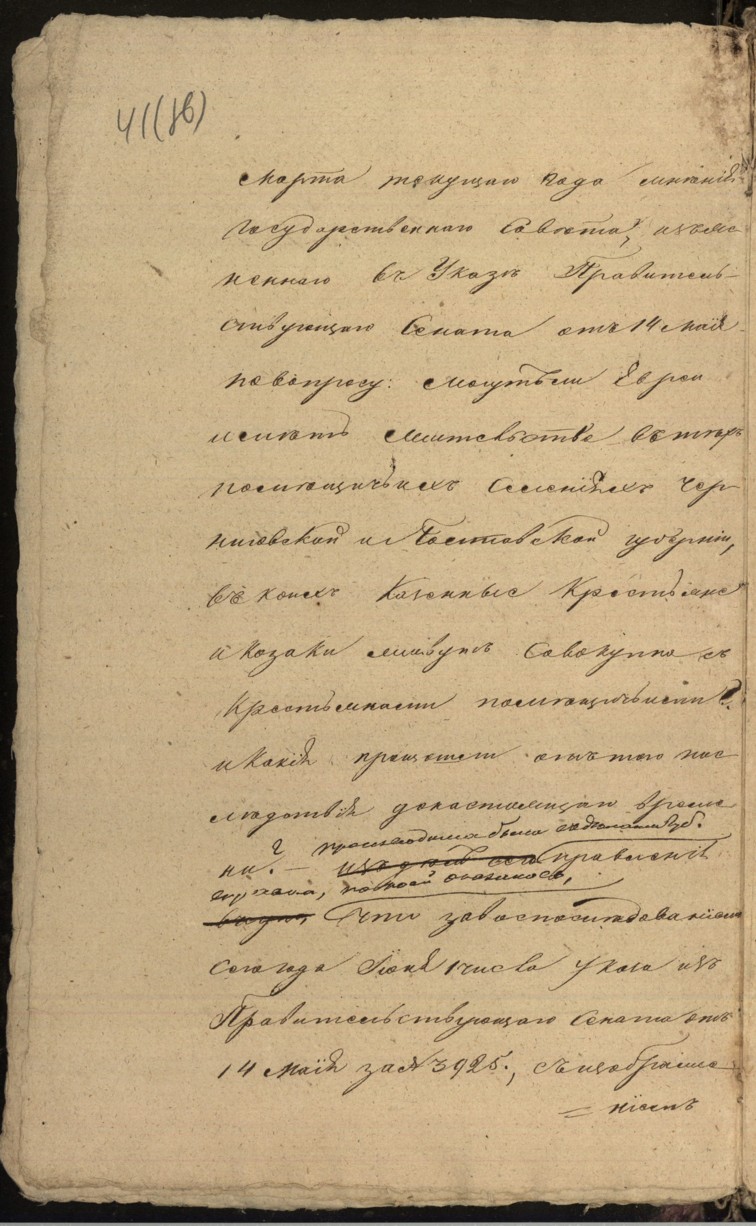 41(зв)
Марта текущаго года мненій
Государственнаго Совета, изъяс
неннаго въ Указе Правитель-
ствующаго Сената отъ 14 Маія
по вопросу: могутъ ли Евреи
иметь жительство въ техъ
помещичьихъ селеніяхъ Чер
ниговской и Полтавской губерніи,
въ коихъ Казенные Крестьяне
и козаки живутъ совокупно съ
Крестьянами помещичьими?
и Какія произошли отъ того пос
ледствія до настоящаго време
производима была
ни? — правленія
справка, по коей оказалось,
Что за воспоследованіемъ
сего года Іюня 1 числа Указа изъ
Правительствующаго Сената отъ
14 Маія за № 3925., съ изображе
= ніемъ